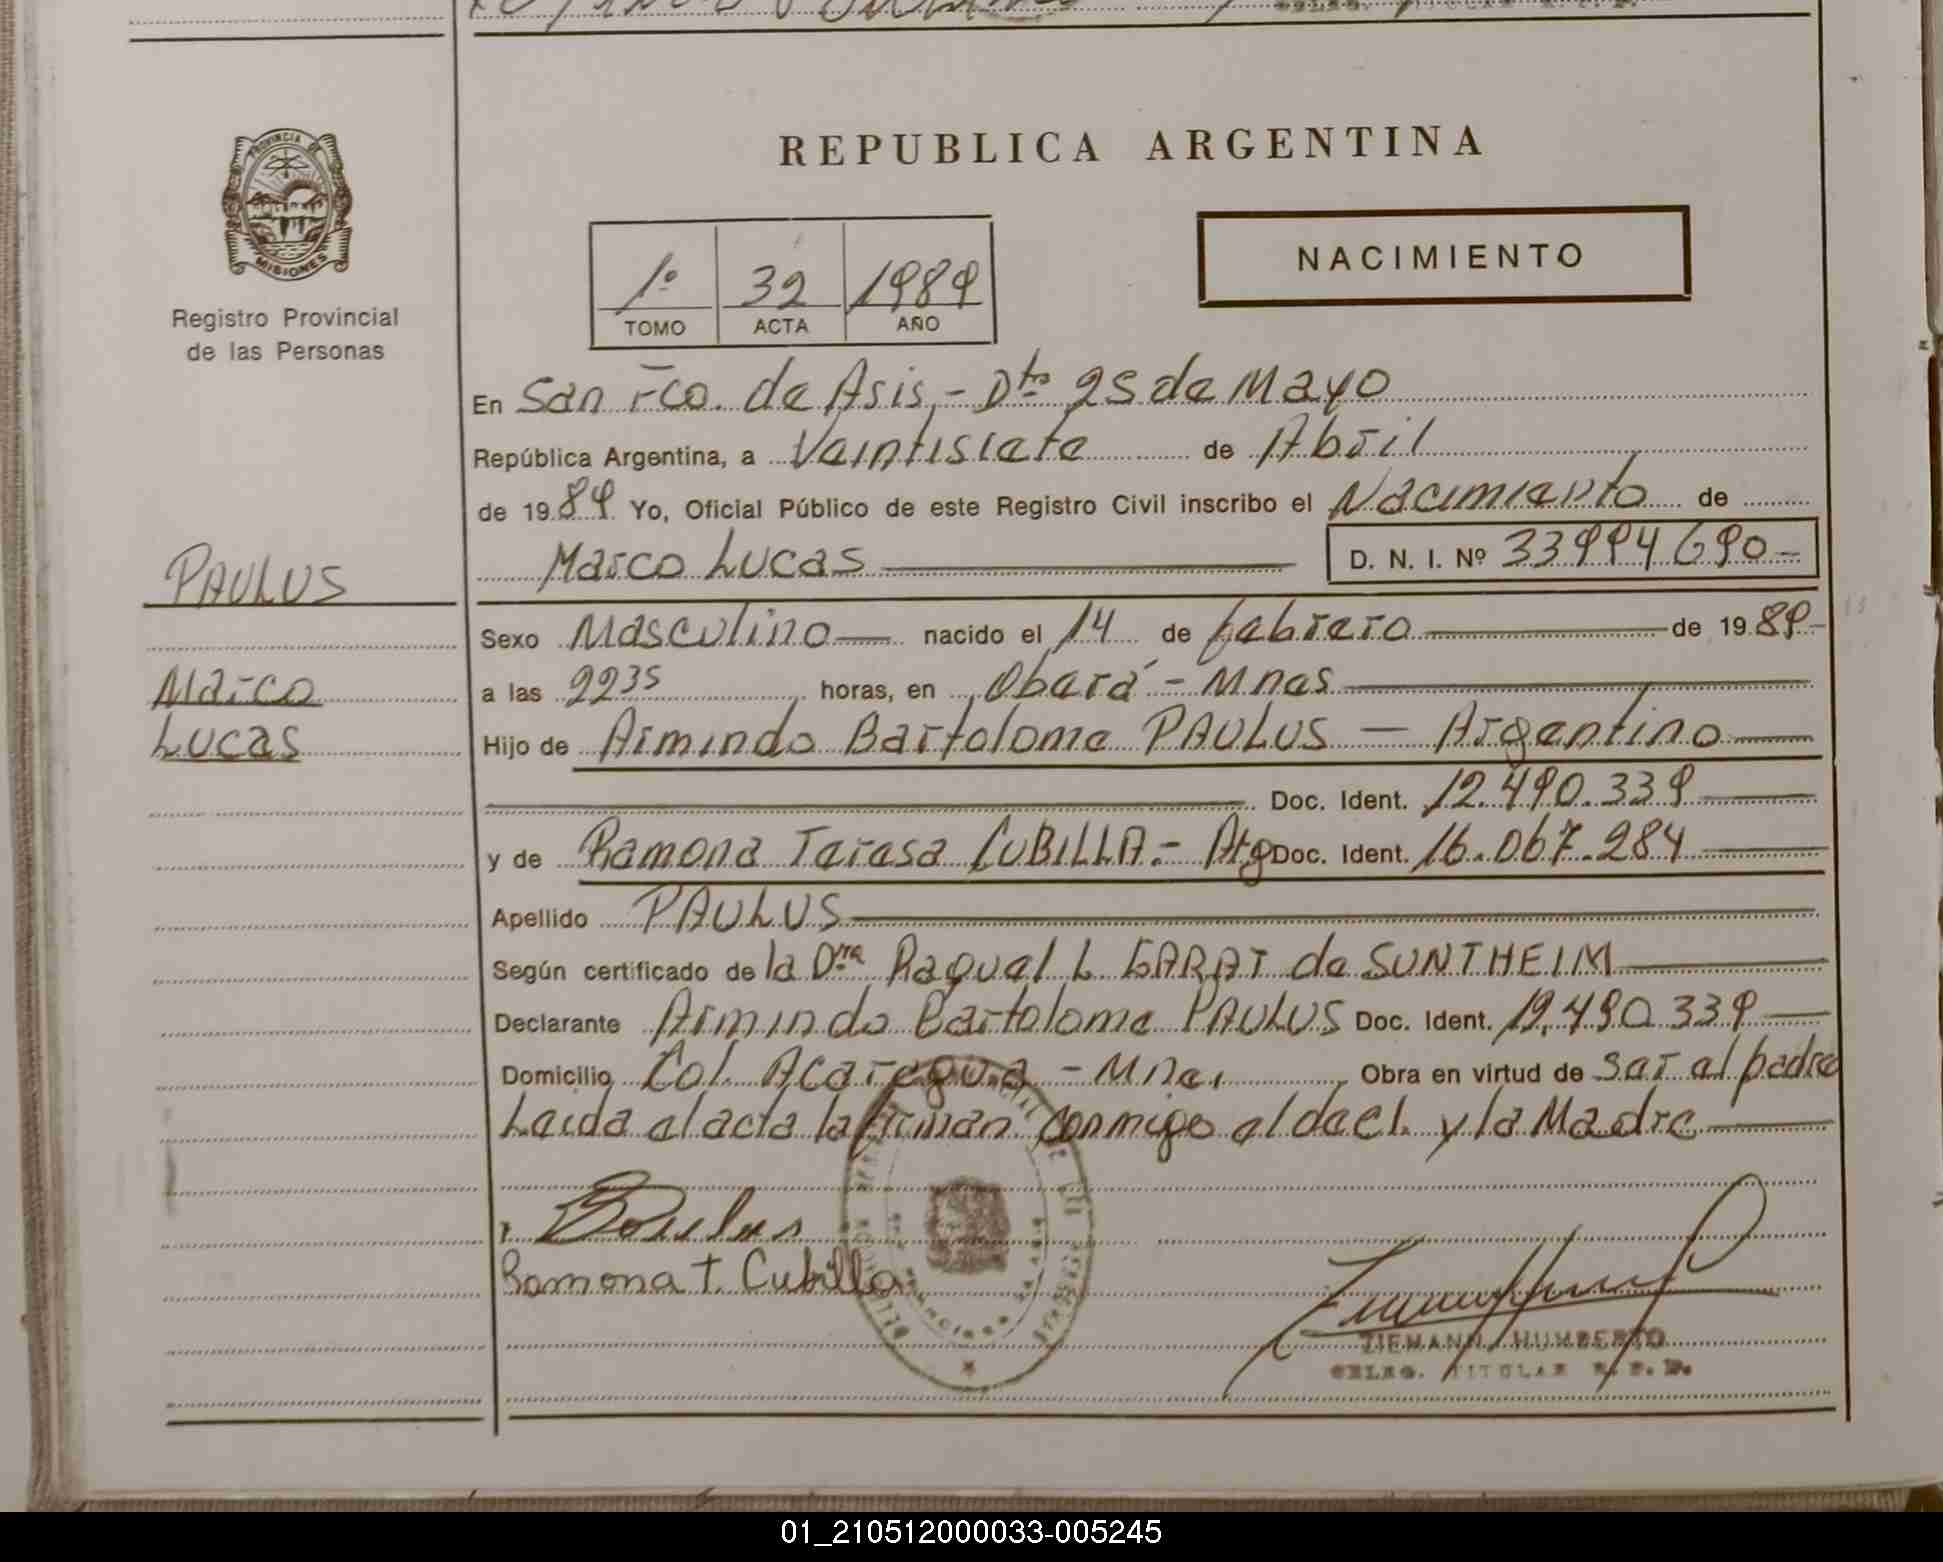 REPUBLICA ARGENTINA
PROVINCIA DE
MISIONES
Registro Provincial
de las Personas
NACIMIENTO
1º 32 1989
TOMO ACTA AÑO
En San Fco. de Asis,- Dto 25 de Mayo
República Argentina, a Veintisiete de Abril
de 1989 Yo, Oficial Público de este Registro Civil inscribo el Nacimiento de
Marco Lucas D. N. I. Nº 33994690-
PAULUS
Sexo Masculino nacido el 14 de febrero de 1989-
Marco
a las 2235 horas, en Oberá - Mnes
Lucas
Hijo de Armindo Bartolome PAULUS - Argentino
Doc. Ident. 12.490.339
y de Ramona Teresa CUBILLA.- Arg Doc. Ident. 16.067.284
Apellido PAULUS
Según certificado de la Dra Raquel L GARAT de SUNTHEIM
Declarante Armindo Bartolome PAULUS Doc. Ident. 12.490.339
Domicilio Col. Acaragua - Mnes, Obra en virtud de ser el padre
Leida el acta la firman conmigo el decl. y la Madre
Ramona T. Cubilla
ZIEMANN, HUMBERTO
DELEG. TITULAR R. P. P.
01_210512000033-005245